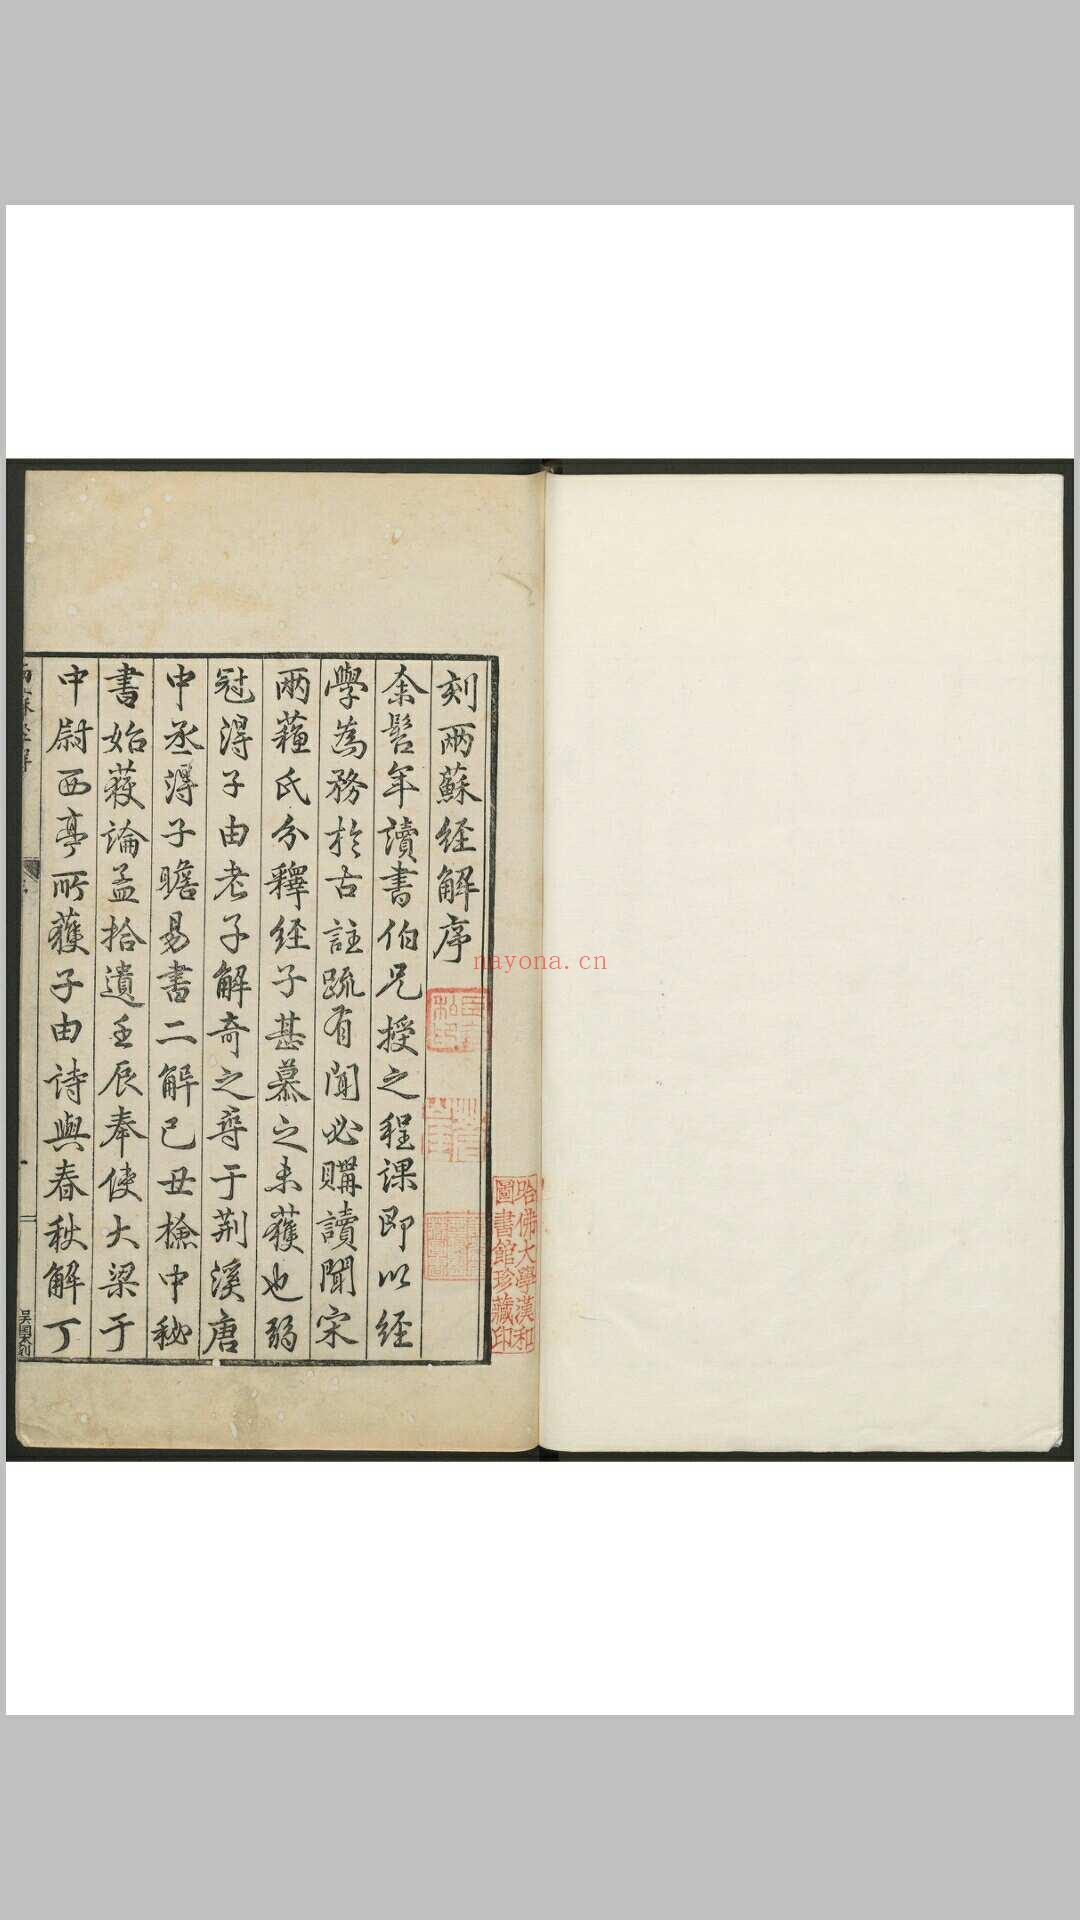 刻兩蘇經解序
余髫年讀書伯兄授之程課即以經
學為務於古註疏有聞必購讀聞宋
兩蘓氏分釋經子甚慕之未獲也弱
冠得子由老子解奇之尋于荆溪唐
中丞得子瞻易書二解己丑檢中秘
書始獲論孟拾遺壬辰奉使大梁于
中尉西亭所獲子由詩與春秋解丁
哈佛大學漢和
圖書館珍藏印
nayona.cn